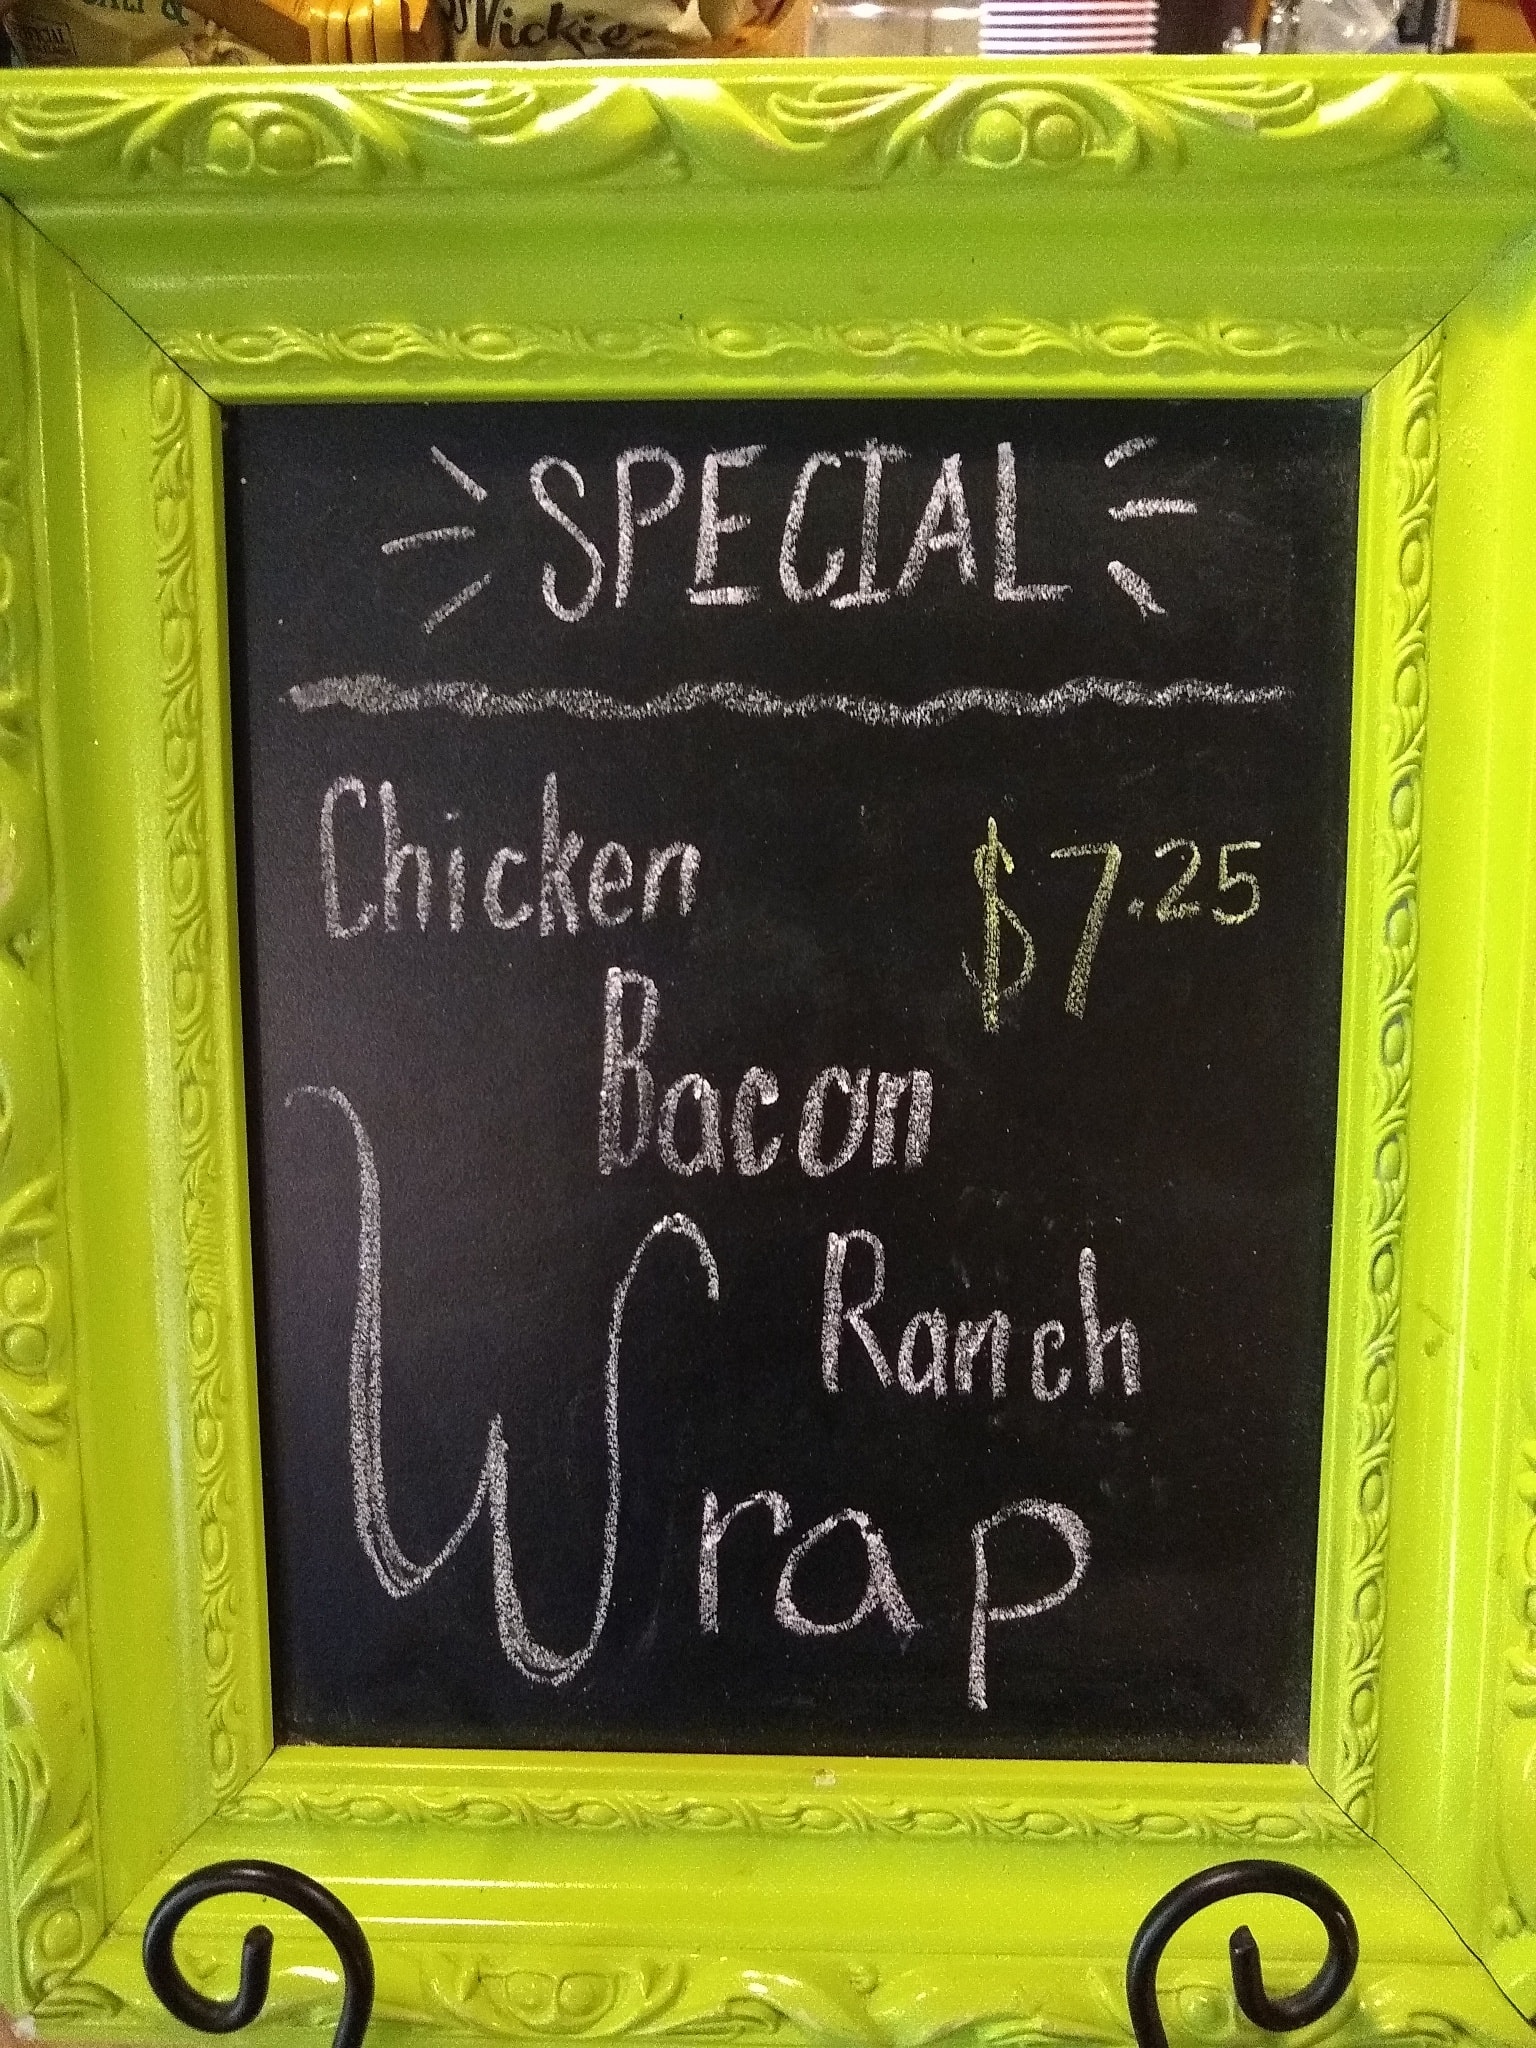 Vickie
SPECIAL
Chicken $7.25
Bacon
Ranch
Wrap